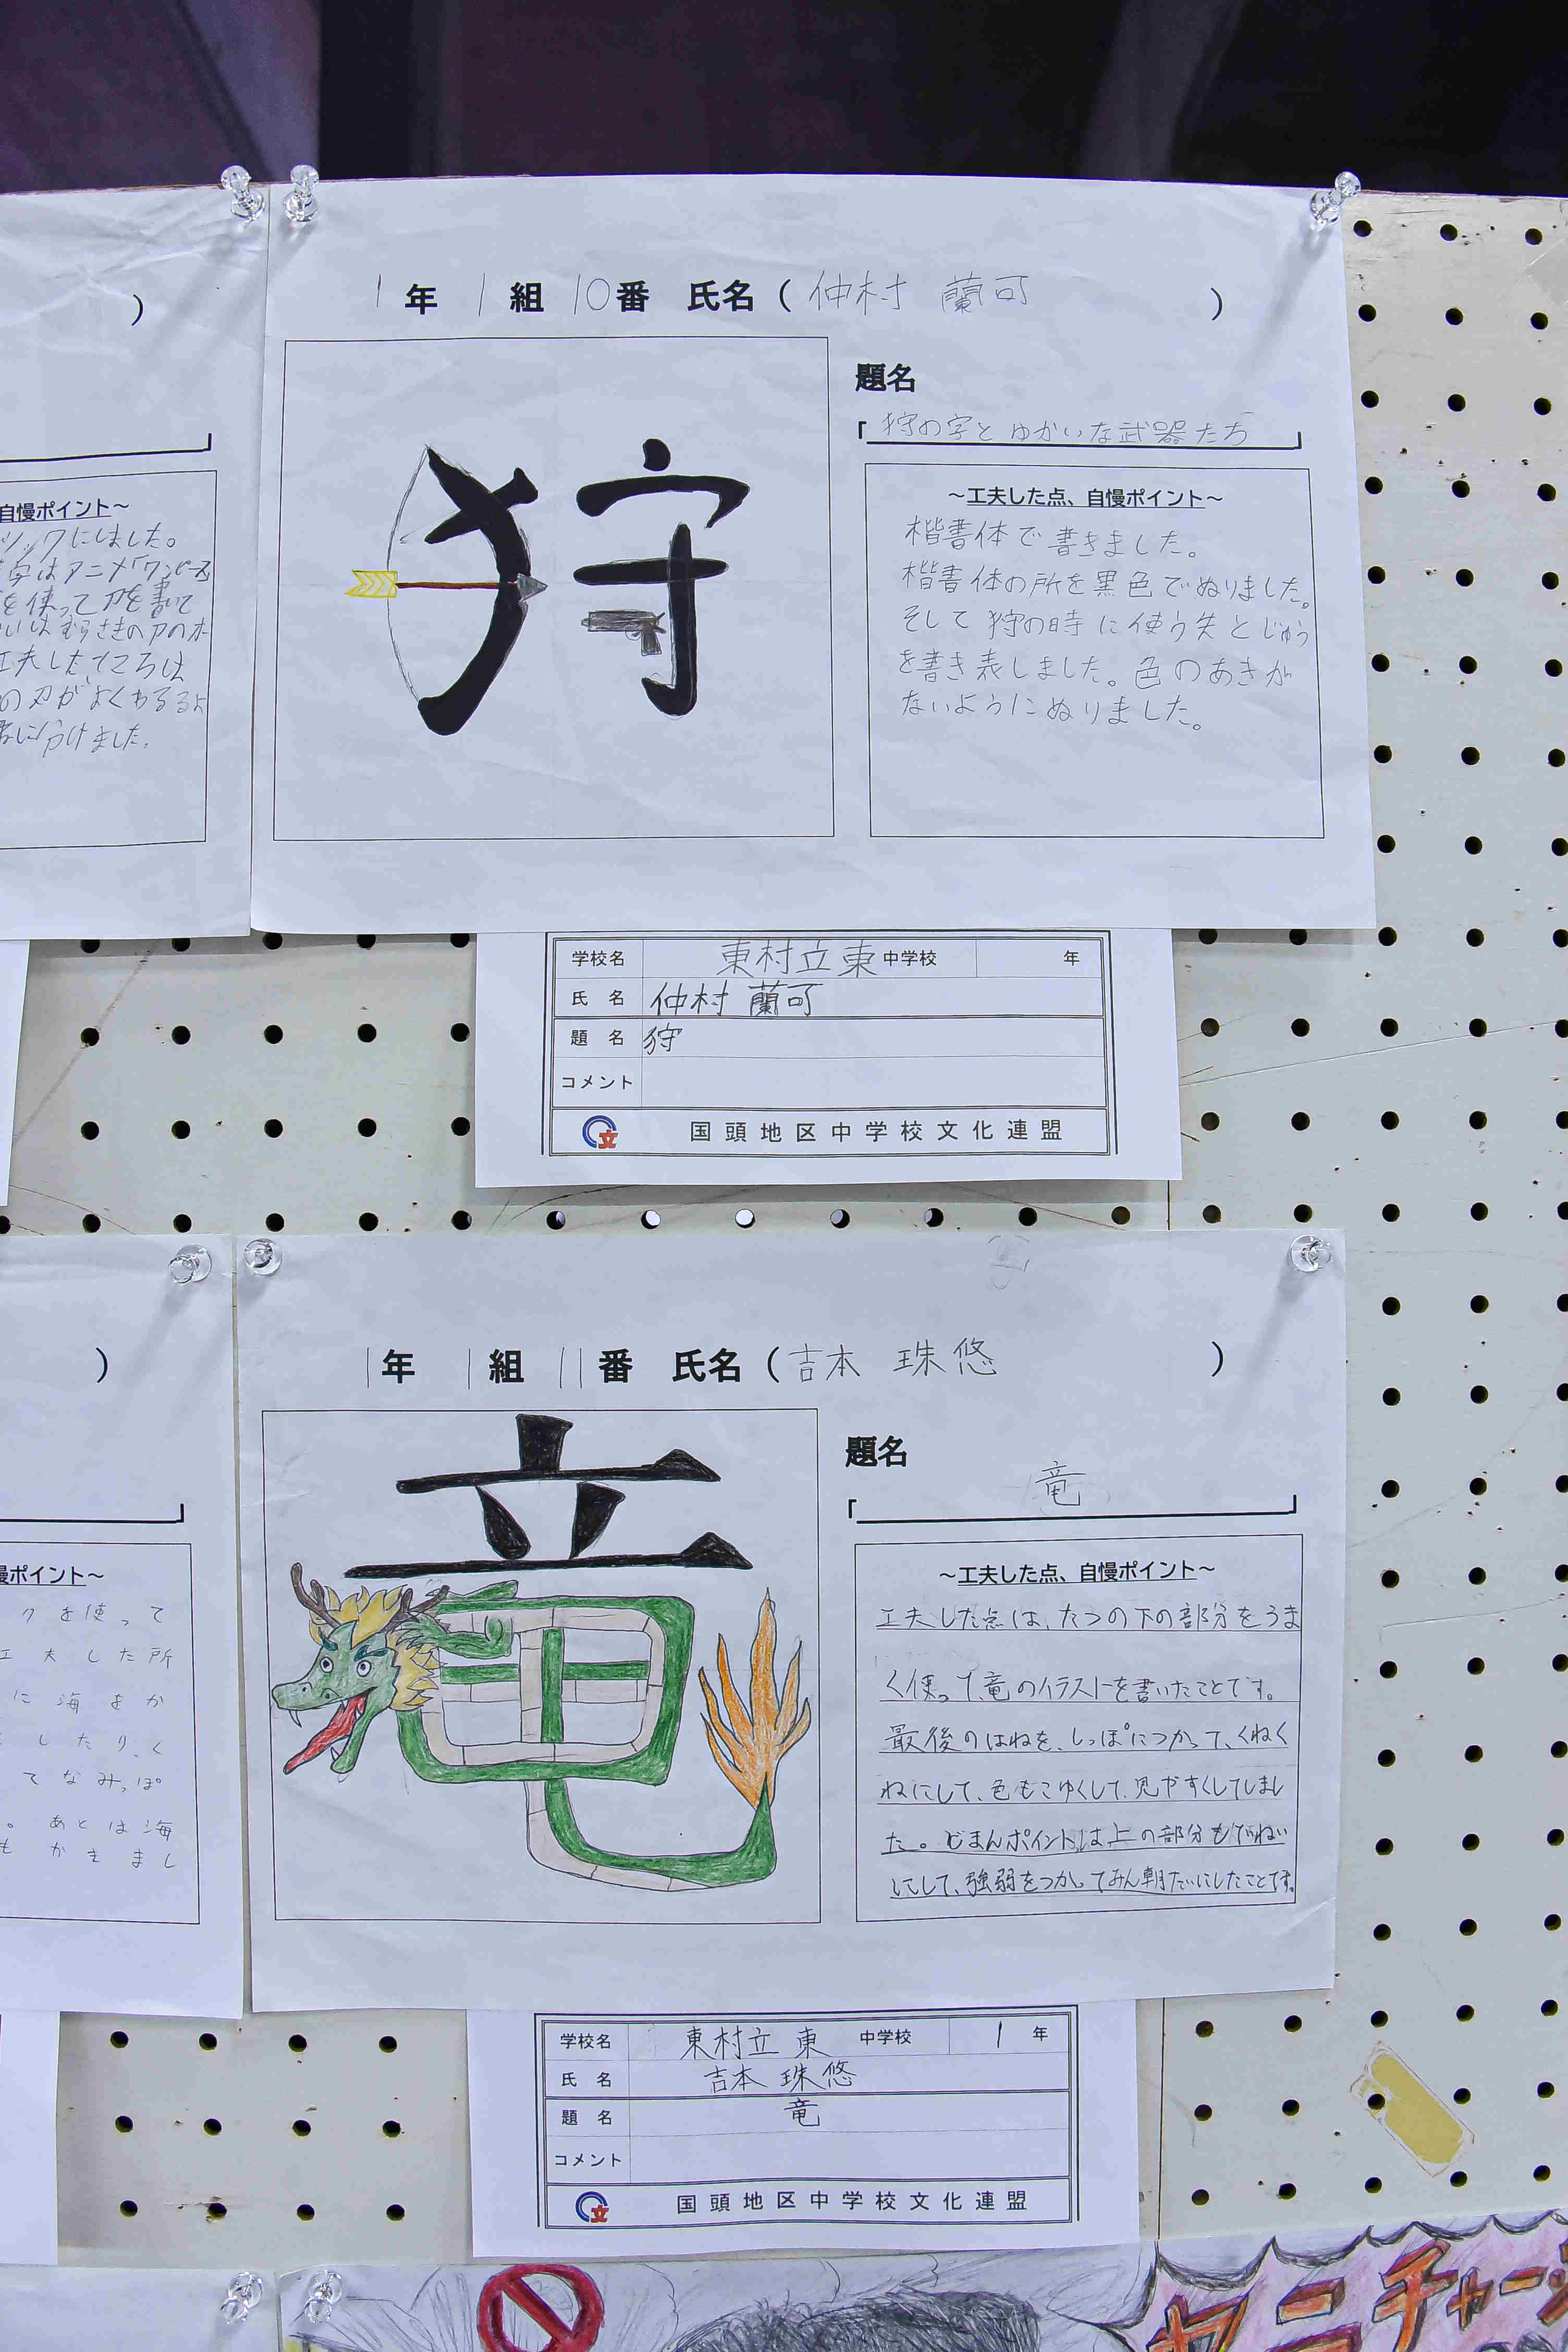 )
1年 1組 10番 氏名 ( 仲村 蘭可 )
狩
題名
「狩の字とゆかいな武器たち」
~工夫した点、自慢ポイント~
楷書体で書きました。
楷書体の所を黒色でぬりました。
そして狩の時に使う矢とじゅう
を書き表しました。色のあきが
ないようにぬりました。
」
自慢ポイント~
ックにしました。
字はアニメ「ワンピース
を使って刀を書いて
工夫したところは
の刃がよくわるるよ
に分けました。
学校名 東村立東 中学校 年
氏 名 仲村 蘭可
題 名 狩
コメント
文 国頭地区中学校文化連盟
)
1年 1組 11番 氏名 ( 吉本 珠悠 )
竜
題名
「 竜 」
~工夫した点、自慢ポイント~
工夫した点は、たつの下の部分をうま
く使って、竜のイラストを書いたことです。
最後のはねを、しっぽにつかって、くねく
ねにして、色もこゆくして、見やすくしてしまし
た。じまんポイントは上の部分もていねい
にして、強弱をつかってみん朝たいにしたことです。
」
慢ポイント~
クを使って
工夫した所
に海をか
したり、く
てなみっぽ
。あとは海
もかきまし
学校名 東村立 東 中学校 1 年
氏 名 吉本 珠悠
題 名 竜
コメント
文 国頭地区中学校文化連盟